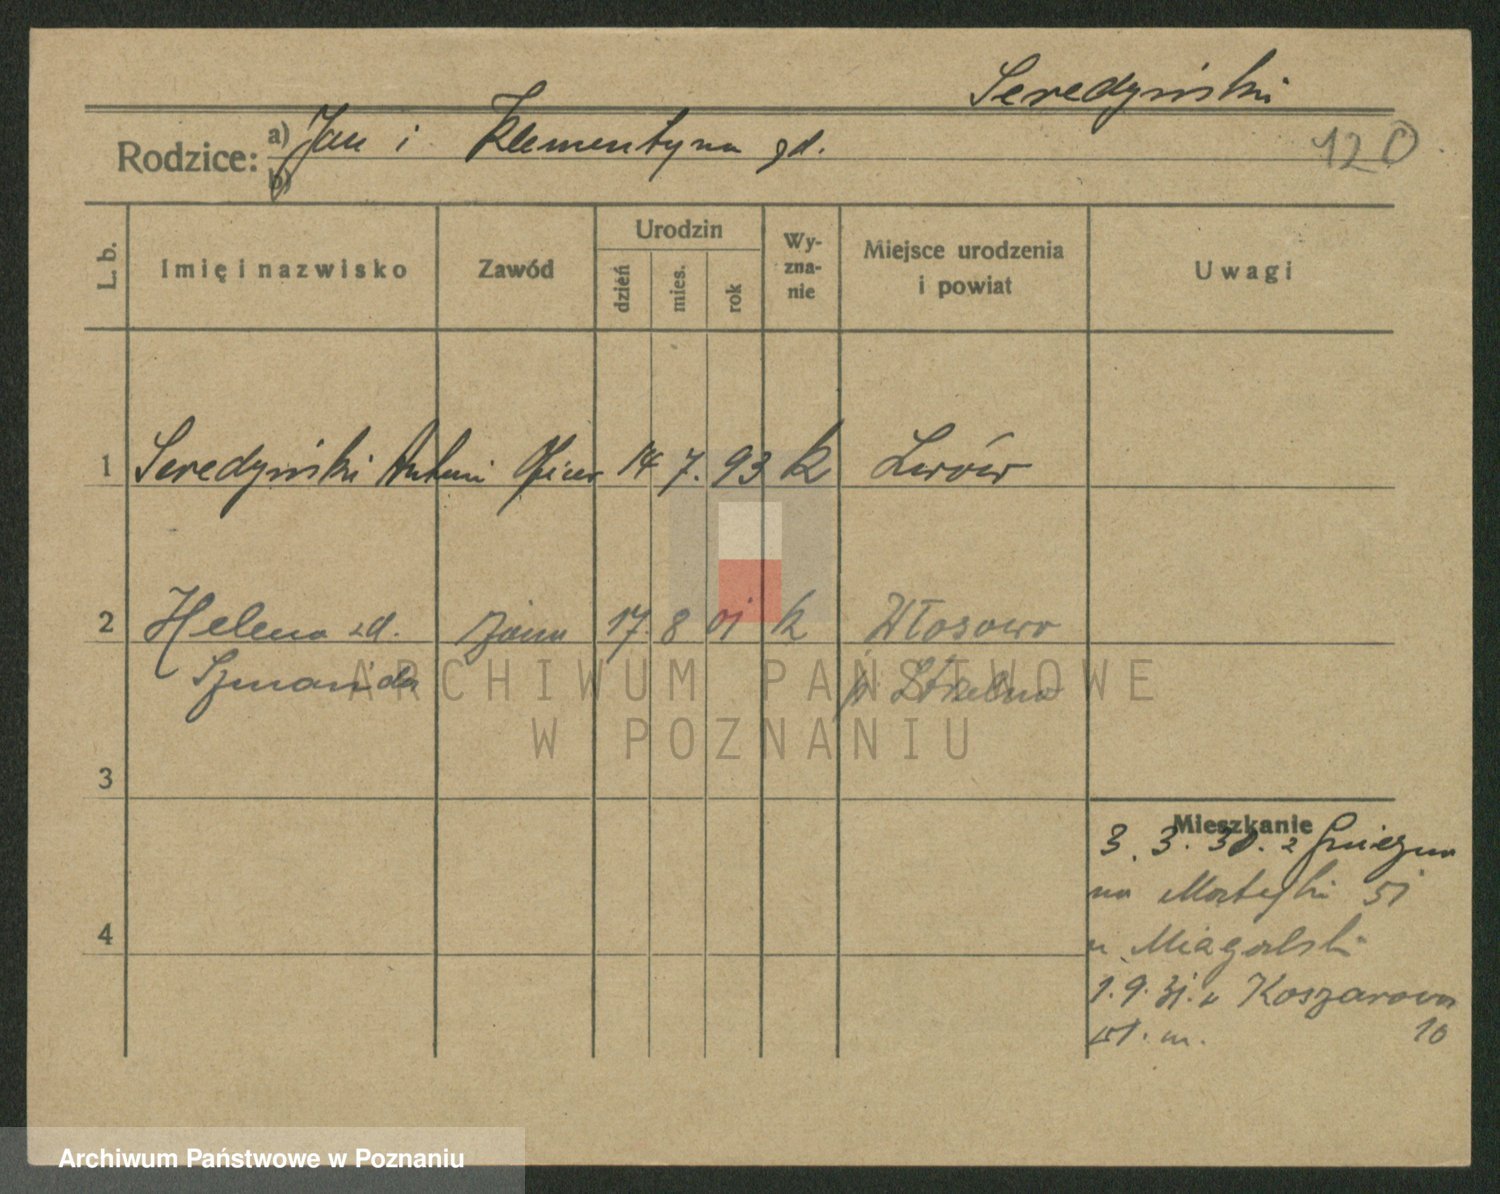 Seredyński
Rodzice: a) Jan i Klementyna zd.
b)
120
L. b.
Imię i nazwisko
Zawód
Urodzin
dzień
mies.
rok
Wy-
zna-
nie
Miejsce urodzenia
i powiat
Uwagi
1 Seredyński Antoni Oficer 14 7. 93 k Lwów
2 Helena zd. żona 17. 8 01 k
p. Strzelno
3
4
Mieszkanie
3. 3. 30. z Gniezna
na 51
u
1. 9. 31. Koszarowa
10
ARCHIWUM PAŃSTWOWE
W POZNANIU
Archiwum Państwowe w Poznaniu